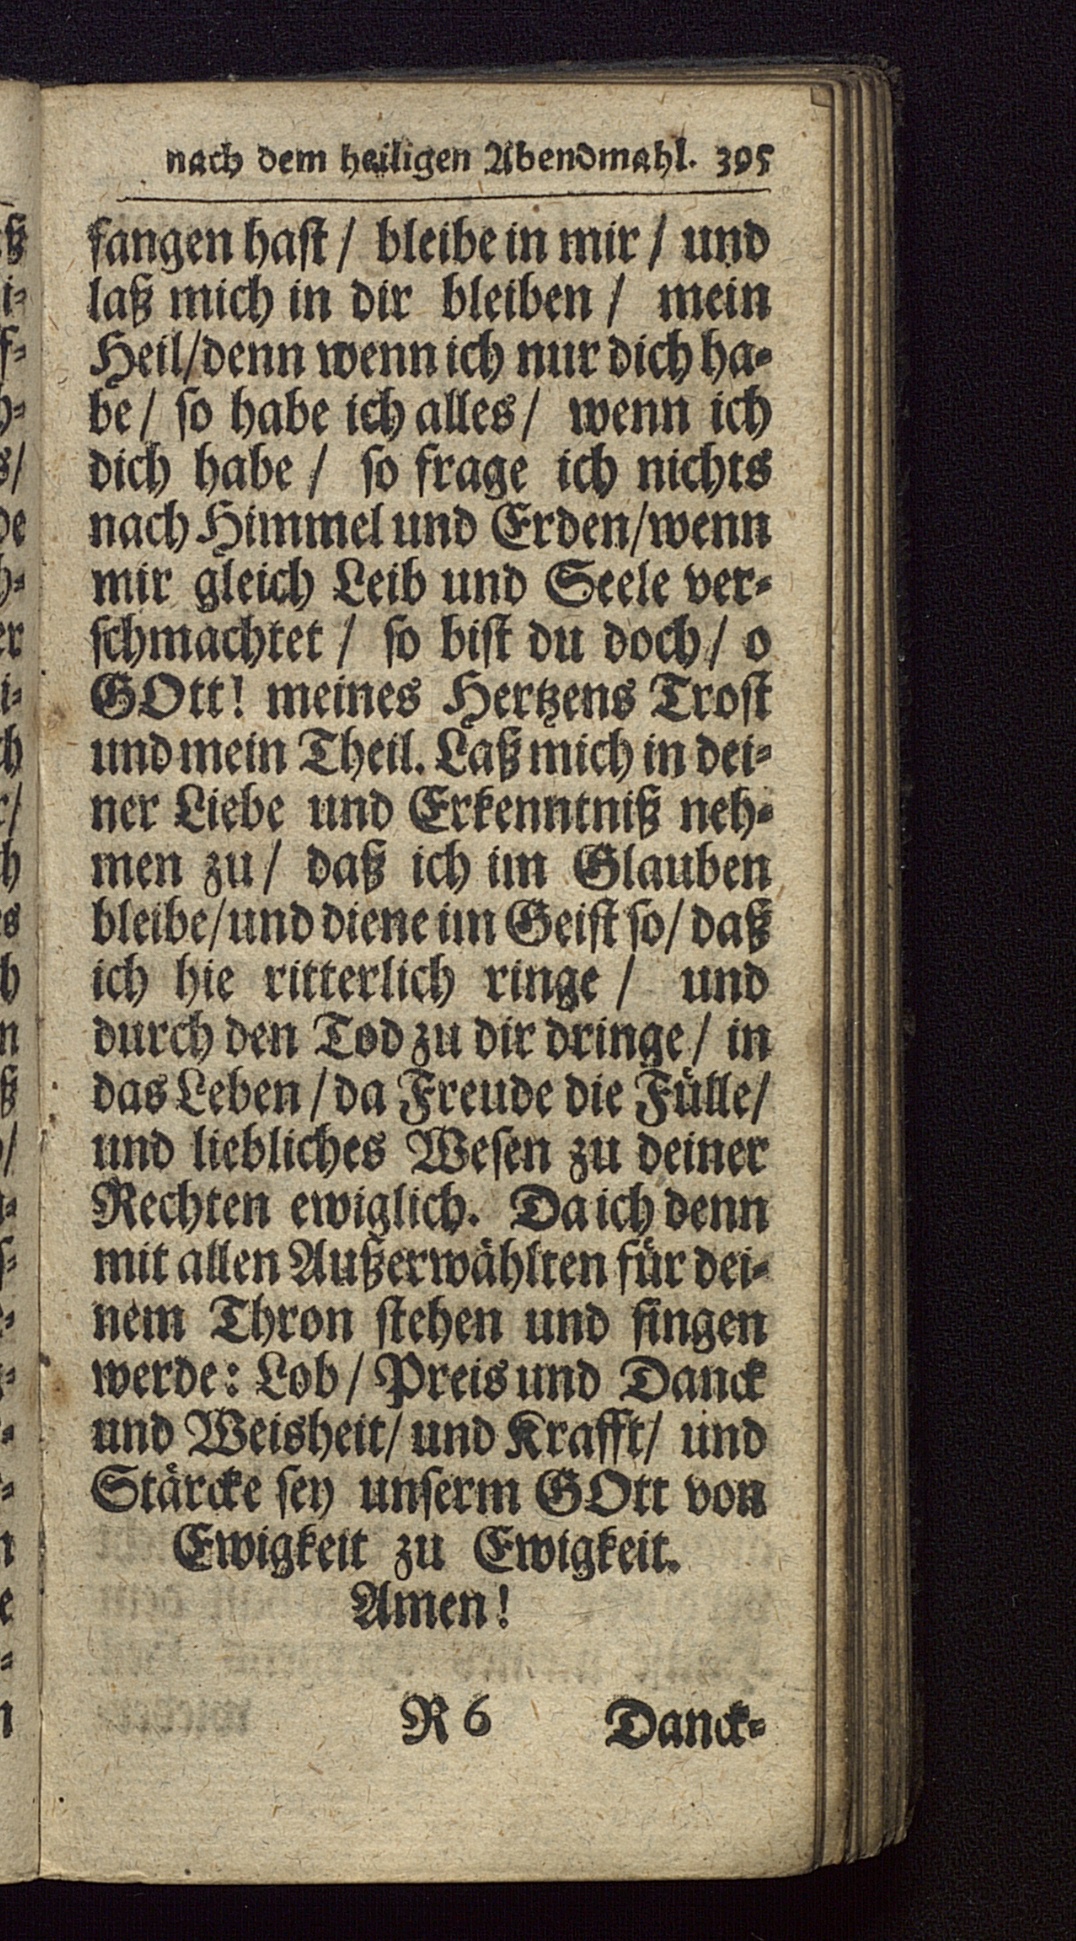 nach dem heiligen Abendmahl. 395
fangen hast / bleibe in mir / und
laß mich in dir bleiben / mein
Heil/denn wenn ich nur dich ha-
be / so habe ich alles / wenn ich
dich habe / so frage ich nichts
nach Himmel und Erden/wenn
mir gleich Leib und Seele ver-
schmachtet / so bist du doch / o
GOtt! meines Hertzens Trost
und mein Theil. Laß mich in dei-
ner Liebe und Erkenntniß neh-
men zu / daß ich im Glauben
bleibe/und diene im Geist so/ daß
ich hie ritterlich ringe / und
durch den Tod zu dir dringe / in
das Leben / da Freude die Fülle/
und liebliches Wesen zu deiner
Rechten ewiglich. Da ich denn
mit allen Außerwählten für dei-
nem Thron stehen und singen
werde: Lob / Preis und Danck
und Weisheit/ und Krafft/ und
Stärcke sey unserm GOtt von
Ewigkeit zu Ewigkeit.
Amen!
R 6 Danck-